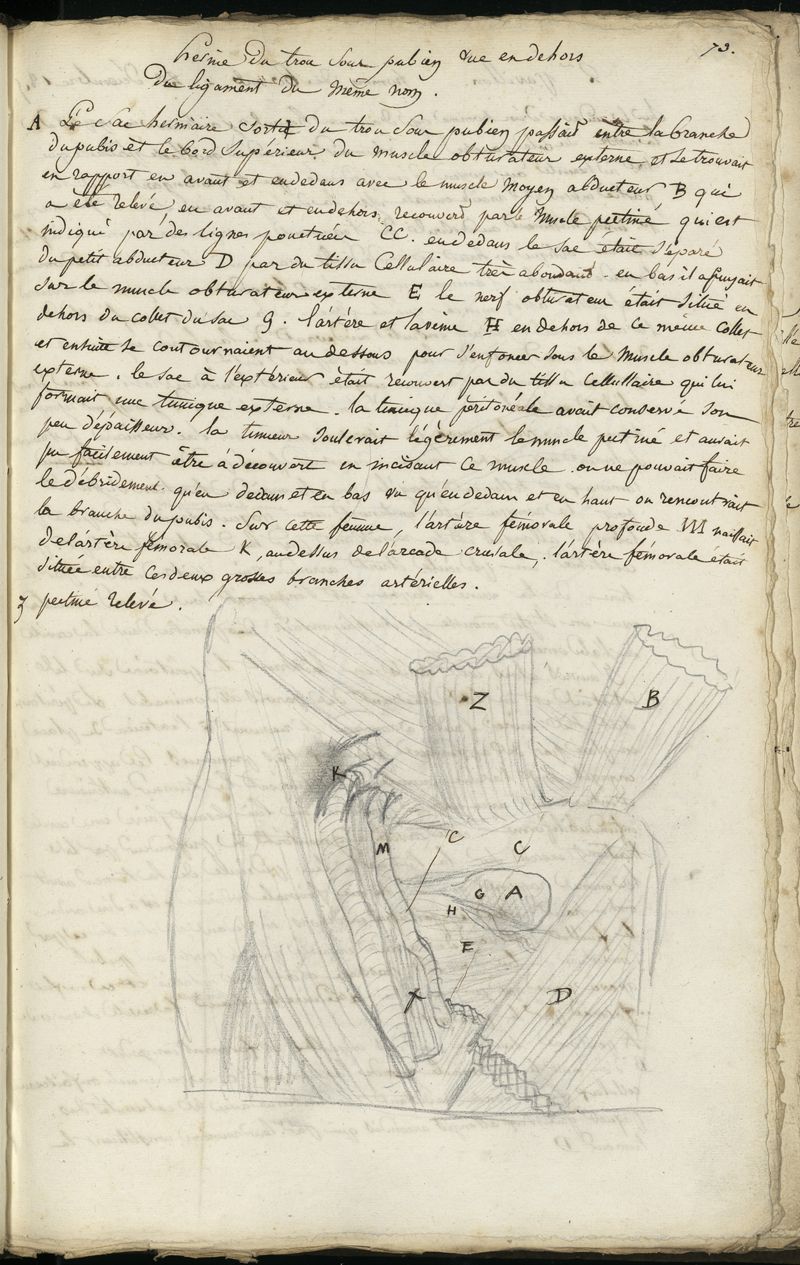 73.
hernie du trou sous pubien vue en dehors
Du ligament du même nom.
A Le sac herniaire sortit du trou sous pubien passait entre la branche
du pubis et le bord supérieur du muscle obturateur externe et se trouvait
en rapport en avant et en dedans avec le muscle moyen abducteur B qui
a été relevé en avant et en dehors, recouvert par le muscle pectiné qui est
indiqué par des lignes ponctuées CC. en dedans le sac était séparé
du petit abducteur D par du tissu cellulaire très abondant. en bas il appuyait
sur le muscle obturateur externe E le nerf obturateur était situé en
dehors du collet du sac G. l'artère et la veine H en dehors de ce même collet
et ensuite se contournaient au dessous pour s'enfoncer sous le muscle obturateur
externe. le sac à l'extérieur était recouvert par du tissu cellullaire qui lui
formait une tunique externe. la tunique péritonéale avait conservé son
peu d'épaisseur. la tumeur soulevait légèrement le muscle pectiné et aurait
pu facilement être à découvert en incisant ce muscle. on ne pouvait faire
le débridement qu'en dedans et en bas vu qu'en dedans et en haut on rencontrait
la branche du pubis. Sur cette femme, l'artère fémorale profonde M naissait
de l'artère fémorale K, au dessus de l'arcade crurale, l'artère fémorale était
située entre ces deux grosses branches artérielles.
Z pectiné relevé.
Z B
K
M C C
G A
H
E
X D